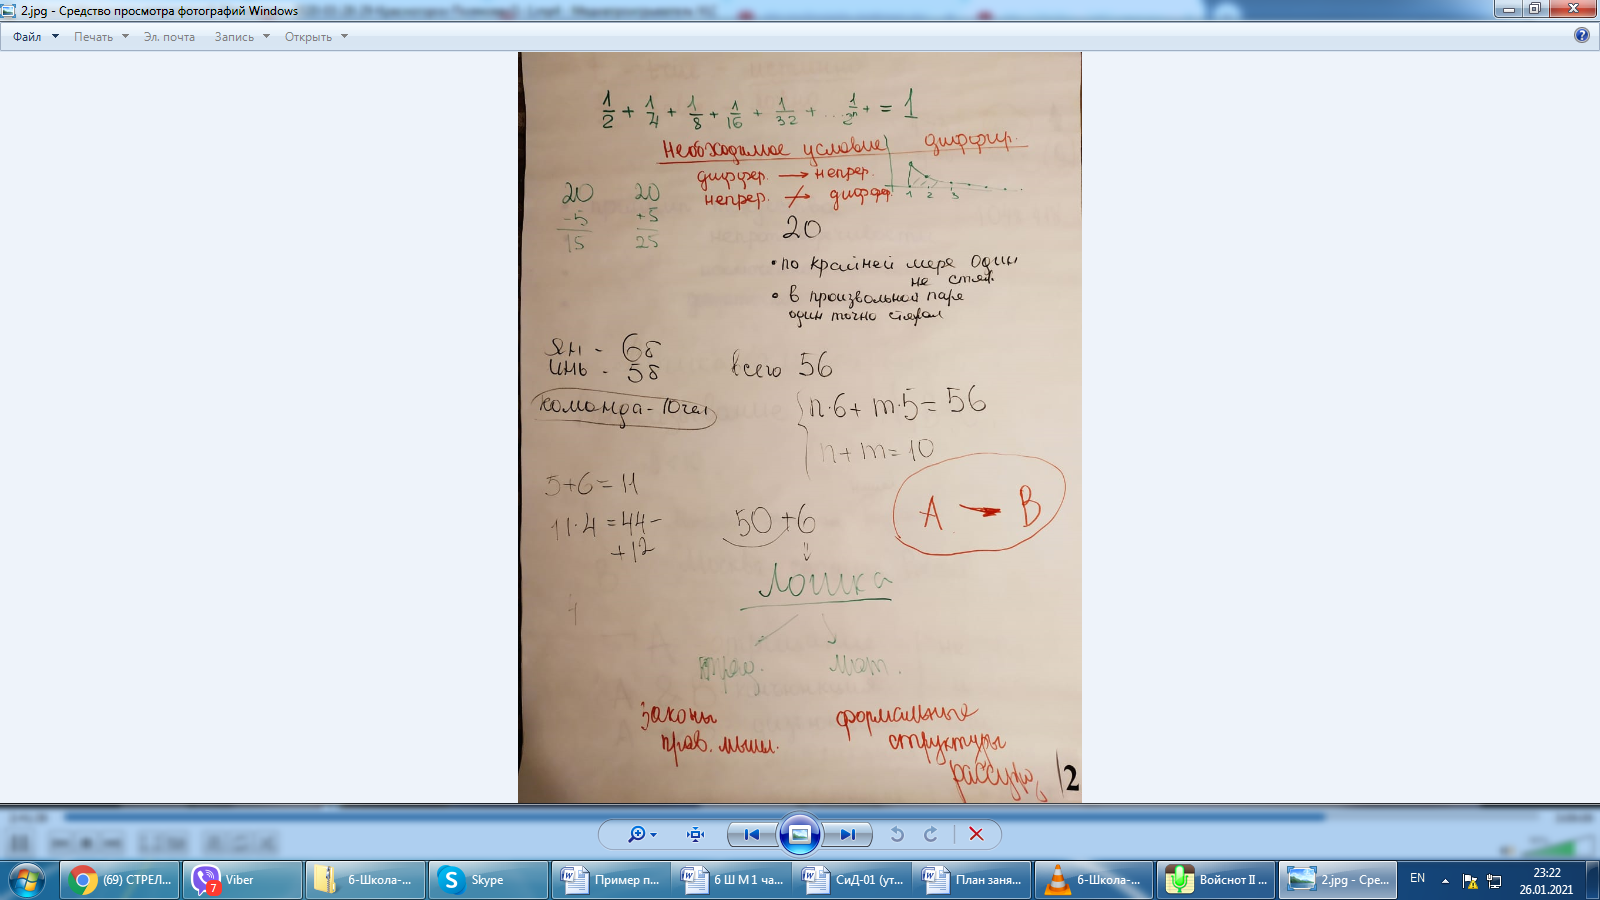 2.jpg - Средство просмотра фотографий Windows
Файл Печать Эл. почта Запись Открыть
1/2 + 1/4 + 1/8 + 1/16 + 1/32 + ... 1/2ⁿ + = 1
Необходимое условие диффир.
диффер. → непрер.
непрер. ↛ дифф
1 2 3
20 20
-5 +5
15 25
20
• по крайней мере один
не
• в произвольной паре
один точно
ян - 6б
инь - 5б
всего 56
команда - 10чел
n·6 + m·5 = 56
n + m = 10
5+6=11
11·4=44-
+12
50+6
A → B
Логика
трад. мат.
законы
прав. мышл.
формальные
структуры
2
(69) СТРЕЛ...
Viber
7
6-Школа-...
Skype
Пример п...
6 Ш М 1 ча...
СиД-01 (ут...
План заня...
6-Школа-...
Войснот II ...
2.jpg - Сре...
EN
23:22
26.01.2021